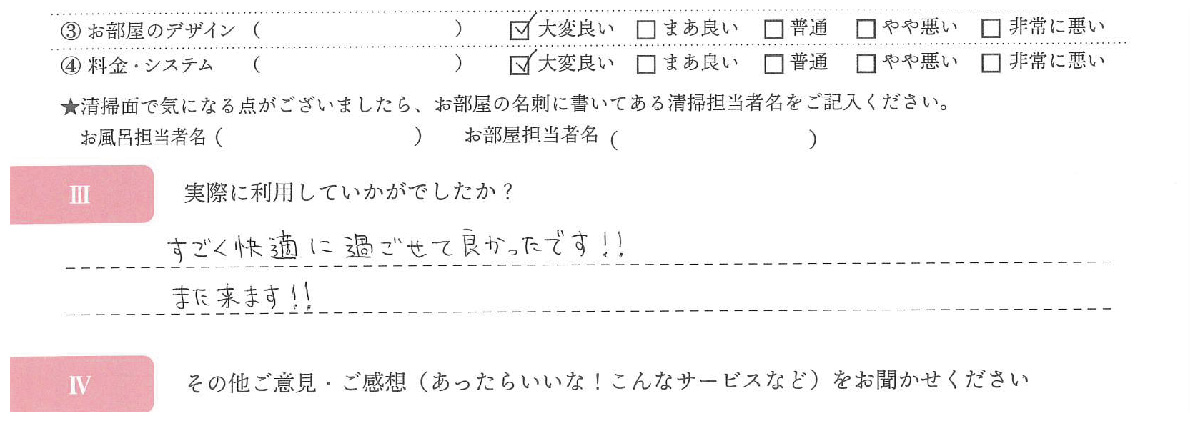 ③ お部屋のデザイン （　　　　　　　　　） ☑ 大変良い □ まあ良い □ 普通 □ やや悪い □ 非常に悪い
④ 料金・システム （　　　　　　　　　） ☑ 大変良い □ まあ良い □ 普通 □ やや悪い □ 非常に悪い
★清掃面で気になる点がございましたら、お部屋の名刺に書いてある清掃担当者名をご記入ください。
お風呂担当者名（　　　　　　　　　） お部屋担当者名（　　　　　　　　　）
Ⅲ 実際に利用していかがでしたか？
すごく快適に過ごせて良かったです!!
また来ます!!
Ⅳ その他ご意見・ご感想（あったらいいな！こんなサービスなど）をお聞かせください